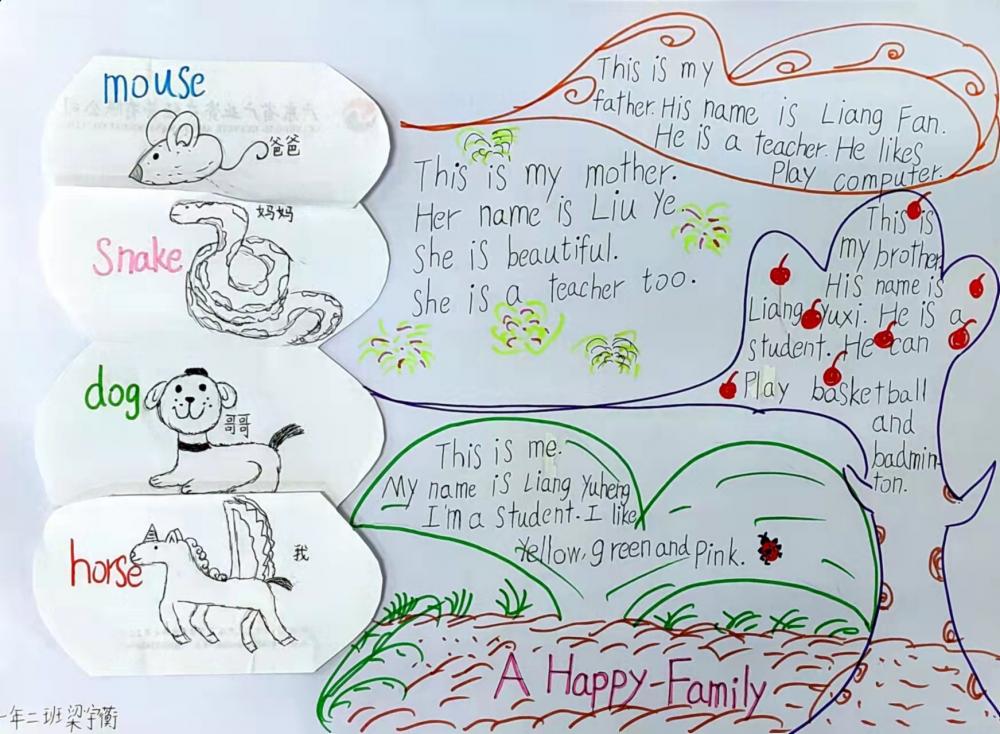 mouse
爸爸
妈妈
Snake
dog
哥哥
horse
我
This is my
father. His name is Liang Fan.
He is a teacher. He likes
Play computer.
This is my mother.
Her name is Liu Ye.
She is beautiful.
She is a teacher too.
This is
my brother
His name is
Liang Yuxi. He is a
student. He can
Play basketball
and
badmin-
ton.
This is me.
My name is Liang Yuheng
I'm a student. I like
Yellow, green and pink.
A Happy Family
一年二班梁宇衡